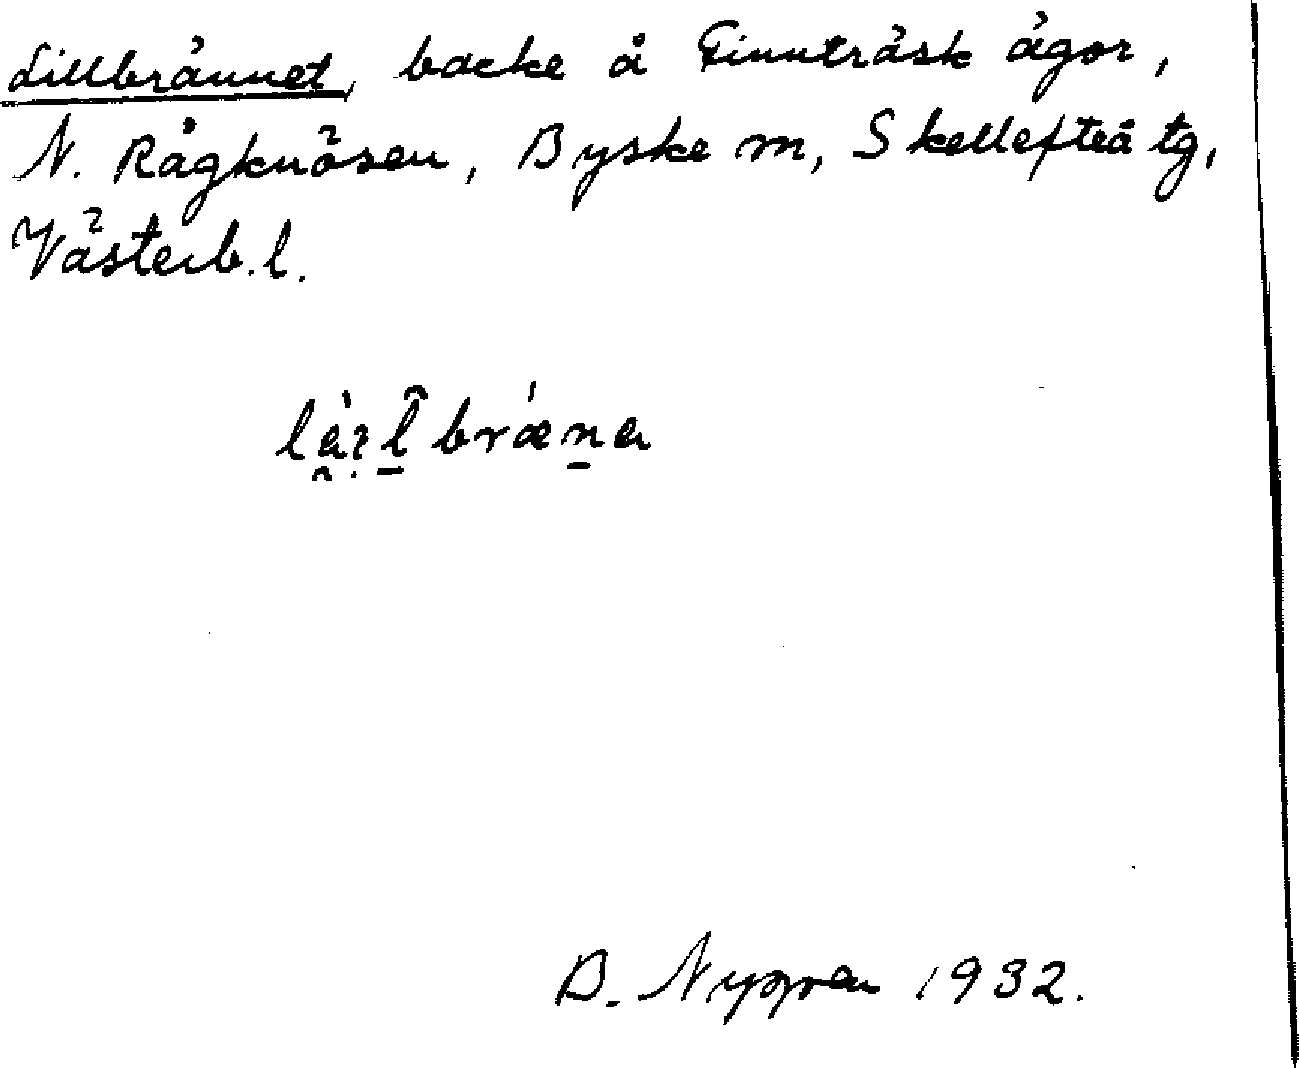 Lillbrännet, backe å Finnträsk ägor,
N. Rågknösen, Byske sn, Skellefteå tg,
Västerb. l.
B. Nygren 1932.